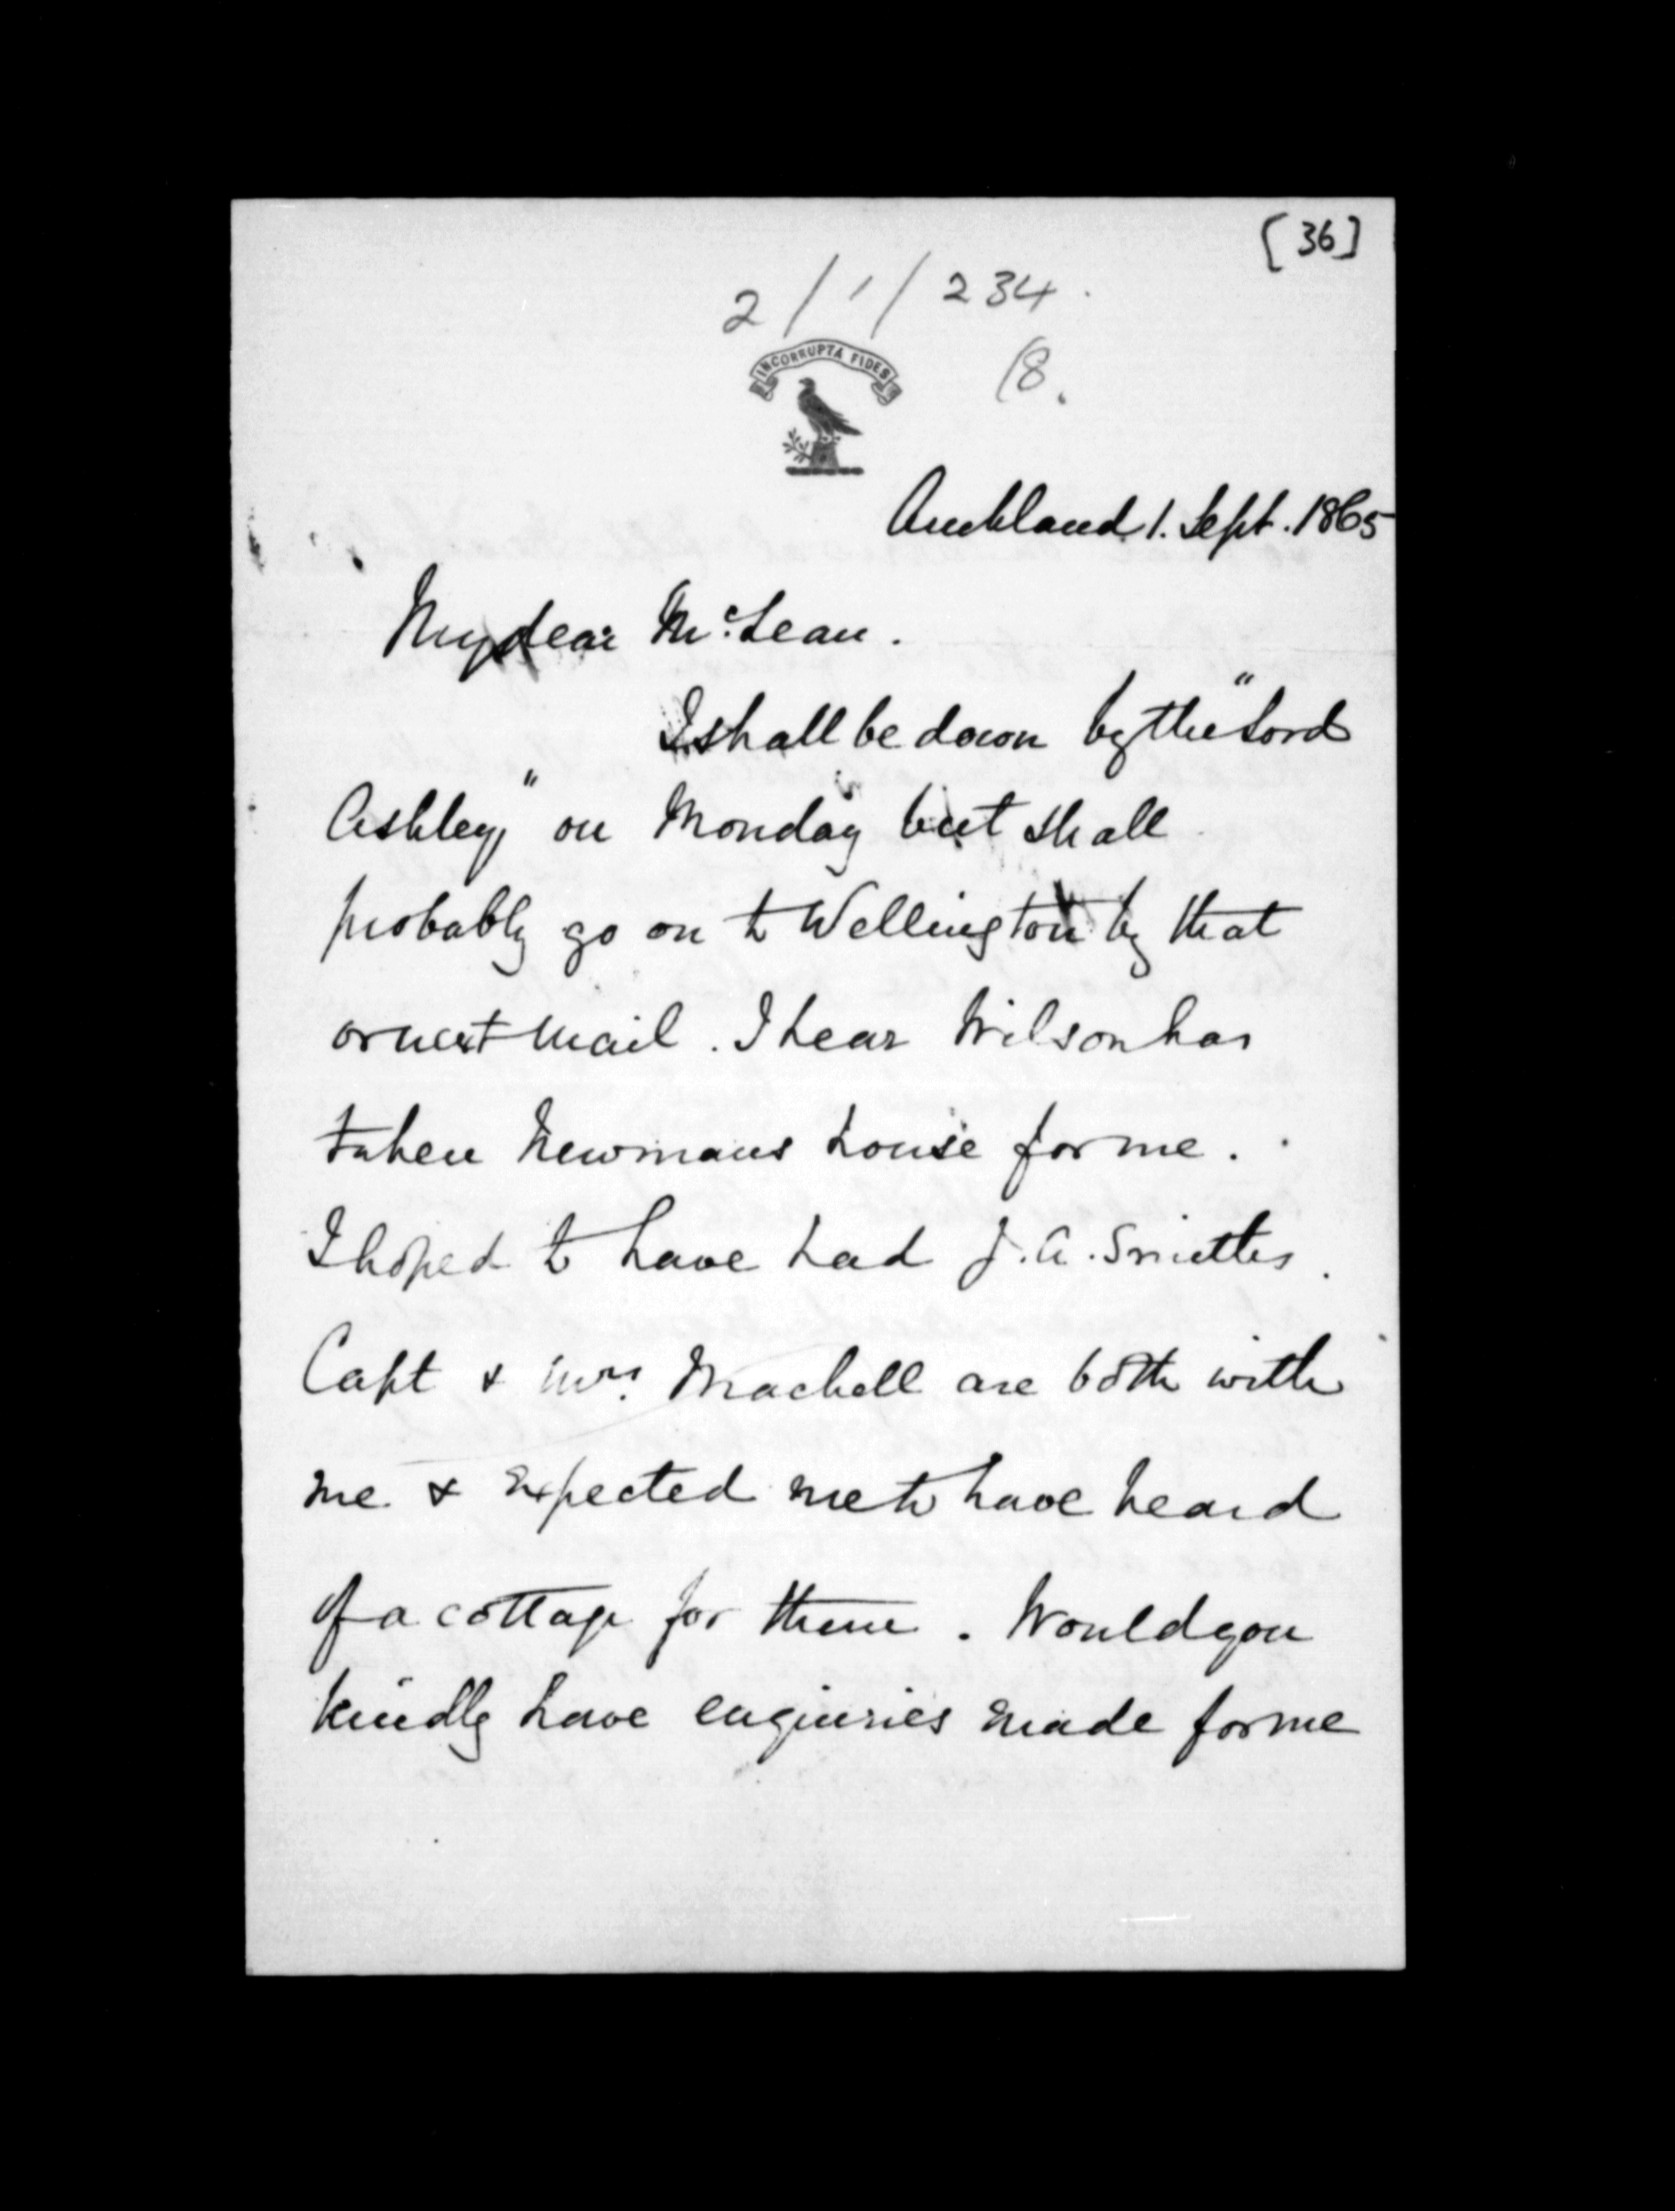 [36]
2/1/234.
(8.
INCORRUPTA FIDES
Auckland 1. Sept. 1865
My dear McLean.
I shall be down by the "Lord
Ashley" on Monday but shall
probably go on to Wellington by that
or next mail. I hear Wilson has
taken Newmans house for me.
I hoped to have had J. A. Smiths.
Capt & Mrs. Machell are both with
me & expected me to have heard
of a cottage for them. Would you
kindly have enquiries made for me